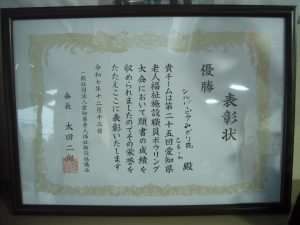 表彰状
優勝
シルバーケアみどり苑
Cチーム 殿
貴チームは第二十五回愛知県
老人福祉施設職員ボウリング
大会において頭書の成績を
収められましたのでその栄誉を
たたえここに表彰いたします
令和七年十二月十二日
一般社団法人愛知県老人福祉施設協議会
会長 太田二郎